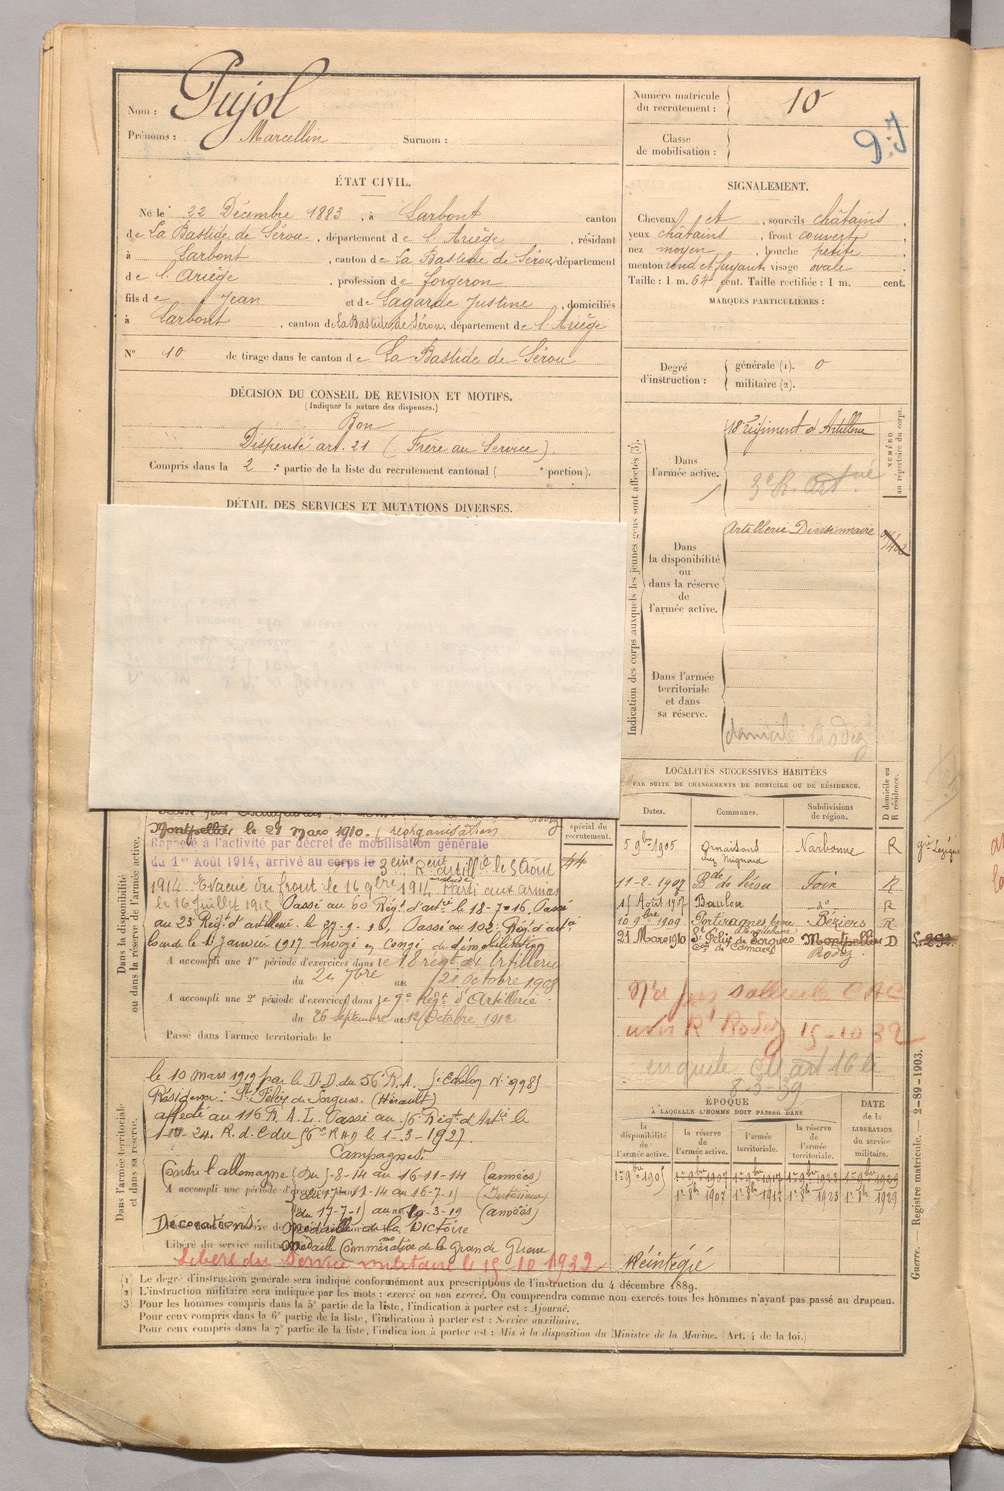 Nom : Pujol
Prénoms : Marcellin Surnom :
Numéro matricule du recrutement : 10
Classe de mobilisation :
ÉTAT CIVIL.
Né le 22 Décembre 1883, à Larbont canton
de La Bastide de Sérou, département de l'Ariège, résidant
à Larbont, canton de La Bastide de Sérou, département
de l'Ariège, profession de forgeron
fils de Jean et de Lagarde Justine, domiciliés
à Larbont, canton de La Bastide de Sérou, département de l'Ariège
N° 10 de tirage dans le canton de La Bastide de Sérou
SIGNALEMENT.
Cheveux et, sourcils châtains,
yeux châtains, front couvert,
nez moyen, bouche petite,
menton rond et fuyant, visage ovale.
Taille : 1 m. 64 cent. Taille rectifiée : 1 m. cent.
MARQUES PARTICULIÈRES :
Degré d'instruction : générale (1). 0
militaire (2).
DÉCISION DU CONSEIL DE REVISION ET MOTIFS.
(Indiquer la nature des dispenses.)
Bon
Dispensé art. 21 (Frère au Service).
Compris dans la 2e partie de la liste du recrutement cantonal ( e portion).
DÉTAIL DES SERVICES ET MUTATIONS DIVERSES.
Indication des corps auxquels les jeunes gens sont affectés (3).
NUMÉRO au répertoire du corps.
Dans l'armée active.
18e régiment d'Artillerie
Dans la disponibilité ou dans la réserve de l'armée active.
Artillerie Divisionnaire
Dans l'armée territoriale et dans sa réserve.
domicile Rodez
LOCALITÉS SUCCESSIVES HABITÉES
PAR SUITE DE CHANGEMENTS DE DOMICILE OU DE RÉSIDENCE.
Dates. Communes. Subdivisions de région. D domicile ou R résidence.
5 9bre 1905 Ornaisons Narbonne R
11-2-1907 Bde de Sérou Foix R
15 Août 1907 Baulou do R
10 9bre 1908 Portiragnes Béziers R
21 Mars 1910 St Félix de Sorgues Montpellier D
Rodez
Dans la disponibilité ou dans la réserve de l'armée active.
spécial du recrutement.
Montpellier le 21 Mars 1910. (réorganisation
Rappelé à l'activité par décret de mobilisation générale
du 1er Août 1914, arrivé au corps le 3 Août
1914. Evacué du front le 16 9bre 1914. Parti aux armées
le 16 Juillet 1915 Passé au 60 Régt d'artie le 18-7-16. Passé
au 23 Régt d'artillerie le 27-9-16, Passé au 102 Régt d'artie
lourde le 1 janvier 1917 Envoyé en congé de démobilisation
A accompli une 1re période d'exercices dans le 18 régt d'Artillerie
du 24 7bre au 21 octobre 1908
A accompli une 2e période d'exercices dans le 9e Régt d'Artillerie.
du 26 septembre au 12 Octobre 1912
Passé dans l'armée territoriale le
Dans l'armée territoriale et dans sa réserve.
le 10 mars 1919 par le D.D. du 56e R.A.
Résidence : St Félix de Sorgues. (Hérault)
affecté au 116 R.A.L. Passé au
le 1-3-1927.
Campagnes
Contre l'allemagne (du 5-8-14 au 16-11-14 (armées)
A accompli une période d'exercices
du 17-11-14 au 16-7-15 (Intérieur)
du 17-7-15 au 10-3-19 (armées)
Décorations : Médaille de la Victoire
Libéré du service militaire
Médaille Commémorative de la Grande Guerre
Libéré du Service militaire le 15-10 1932
Réintégré
15-10 32
enquête art 16
8-3-39
ÉPOQUE
À LAQUELLE L'HOMME DOIT PASSER DANS
DATE de la LIBÉRATION du service militaire.
la disponibilité de l'armée active. la réserve de l'armée active. l'armée territoriale. la réserve de l'armée territoriale.
1er 9bre 1905 1er 9bre 1907 1er 9bre 1917 1er 9bre 1923 1er 9bre 1929
1er 8bre 1907 1er 8bre 1917 1er 8bre 1923 1er 8bre 1929
Guerre. — Registre matricule. — 2-89-1903.
(1) Le degré d'instruction générale sera indiqué conformément aux prescriptions de l'instruction du 4 décembre 1889.
(2) L'instruction militaire sera indiquée par les mots : exercé ou non exercé. On comprendra comme non exercés tous les hommes n'ayant pas passé au drapeau.
(3) Pour les hommes compris dans la 5e partie de la liste, l'indication à porter est : Ajourné.
Pour ceux compris dans la 6e partie de la liste, l'indication à porter est : Service auxiliaire.
Pour ceux compris dans la 7e partie de la liste, l'indication à porter est : Mis à la disposition du Ministre de la Marine. (Art. 4 de la loi.)